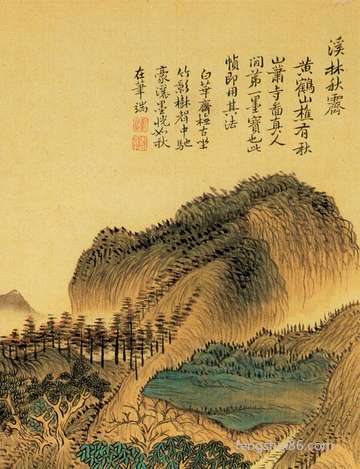 溪林秋霽
黃鶴山樵有秋
山蕭寺圖真人
間第一墨寶也此
幀即用其法
白華齋極古坐
竹影樹聲中馳
豪潑墨恍如秋
在筆端
fengshui86.com